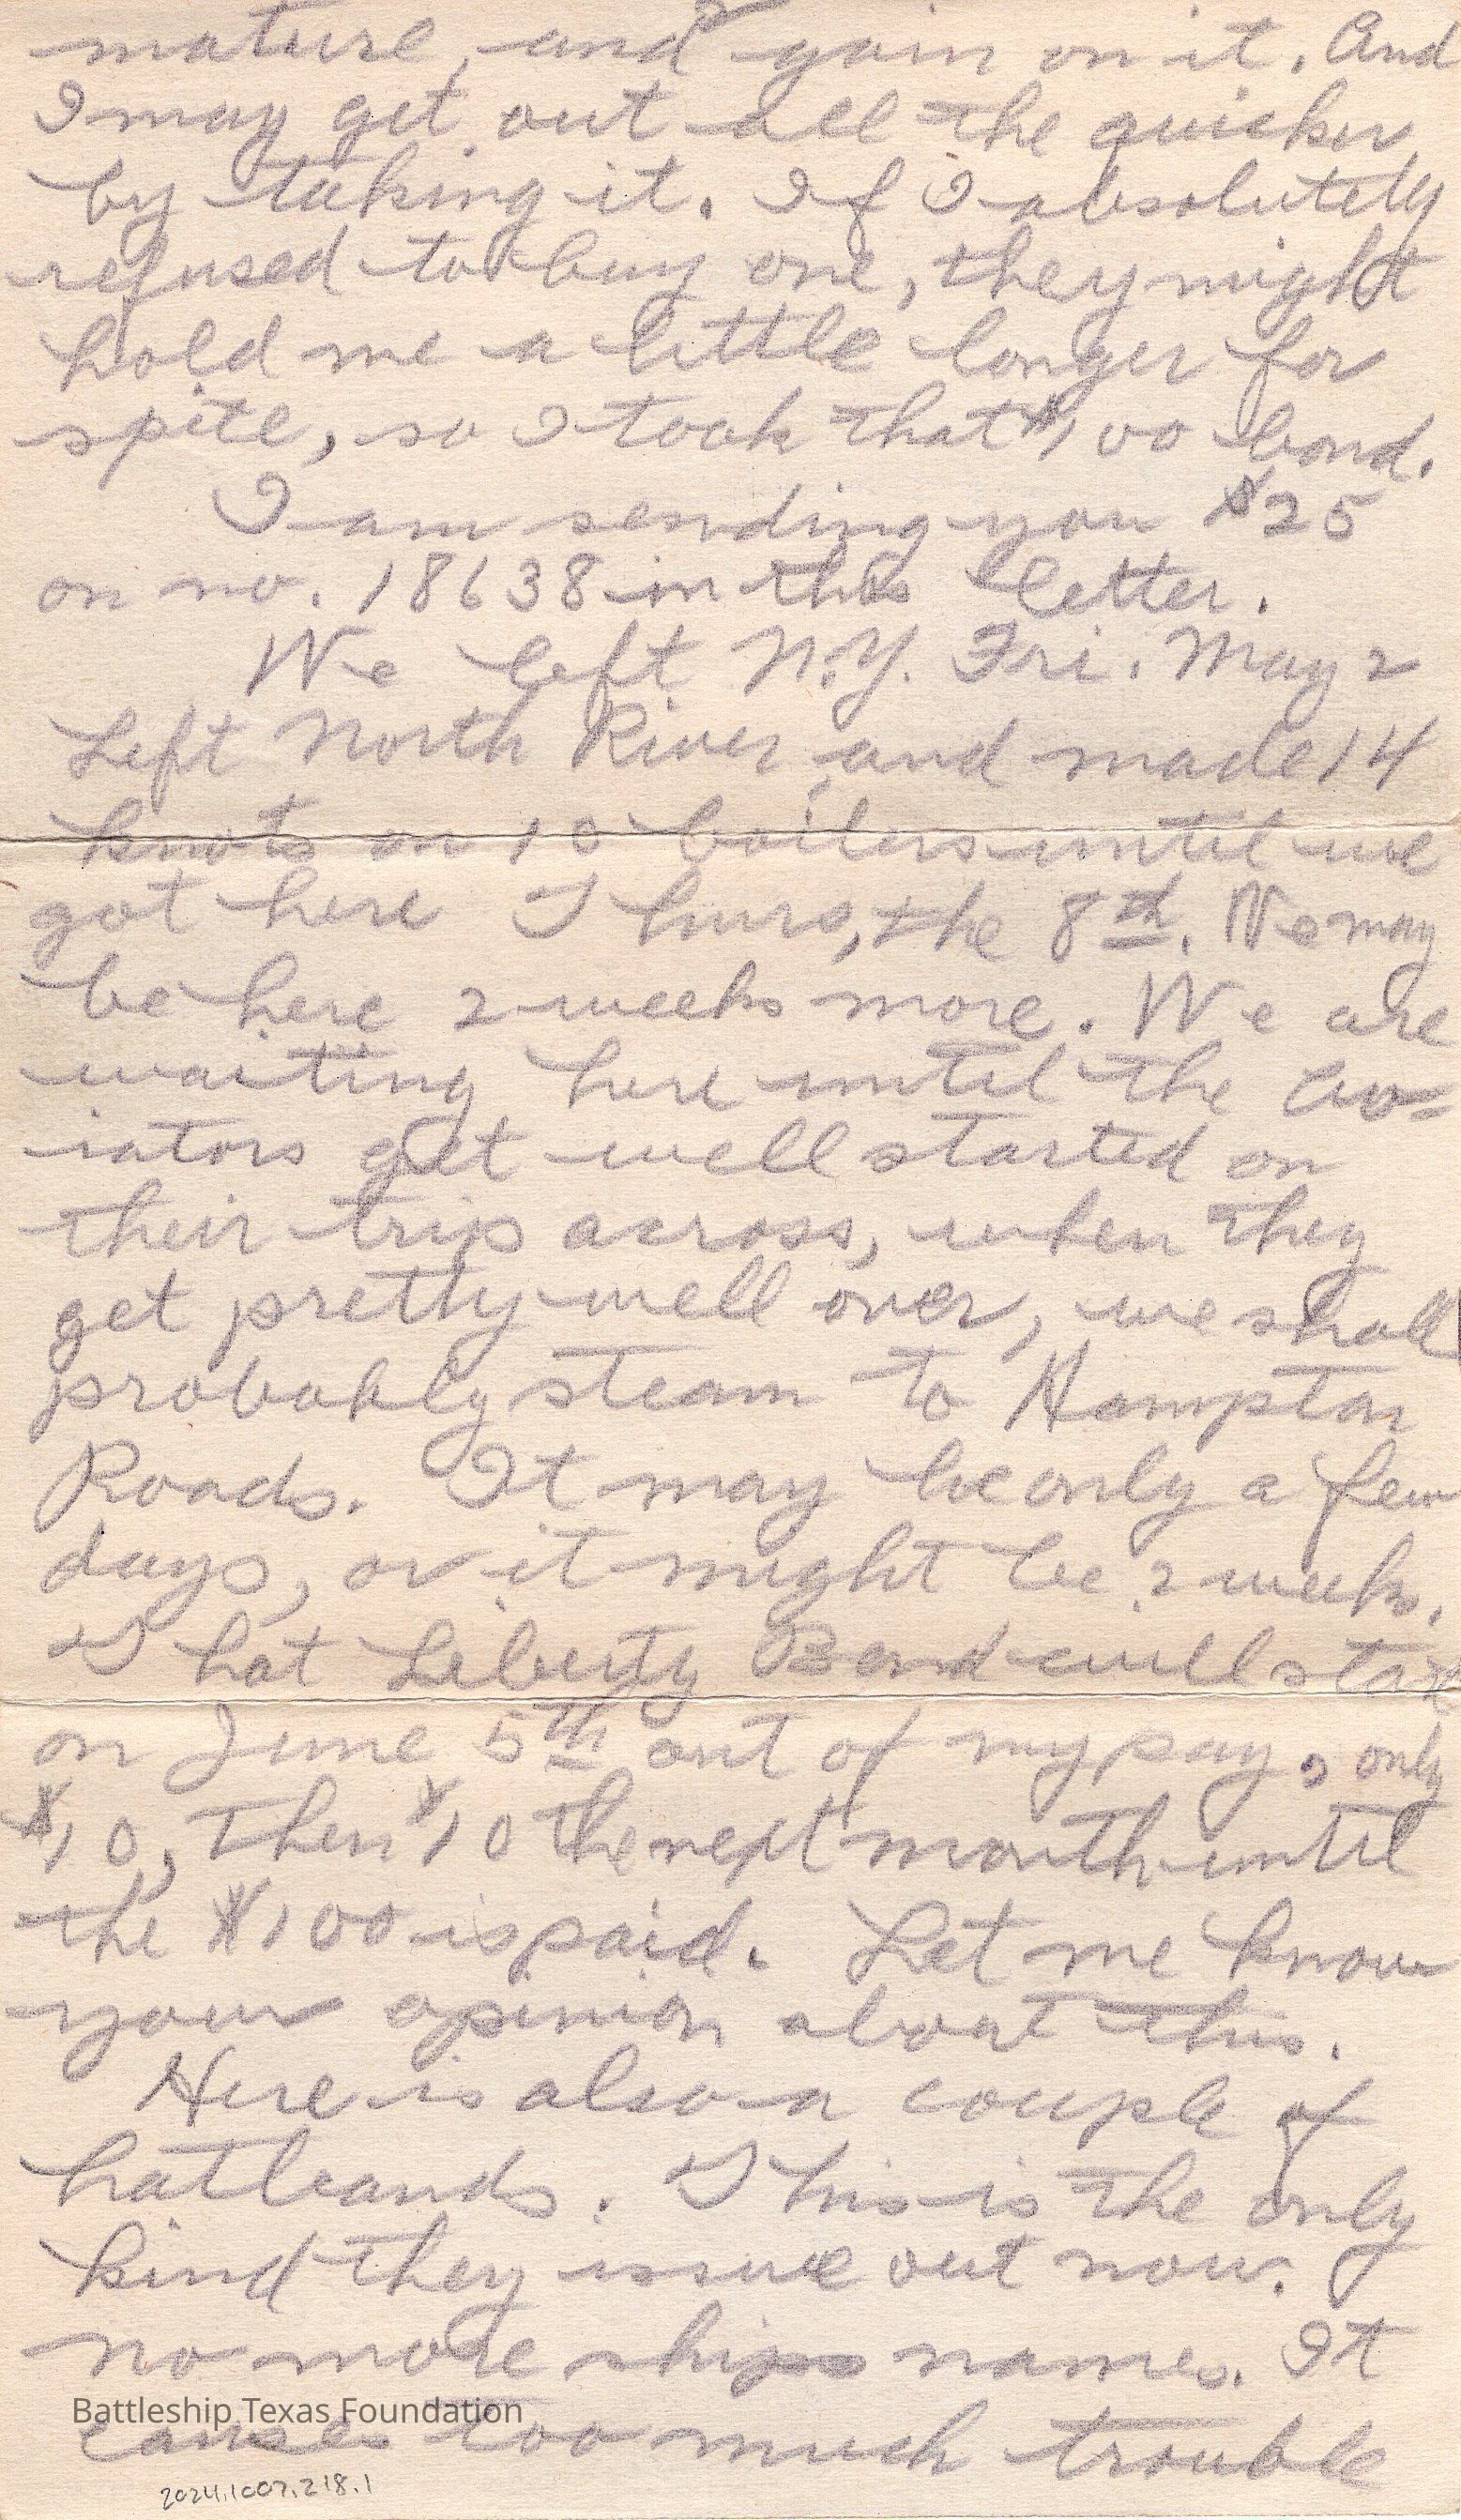 mature, and gain on it. And
I may get out all the quicker
by taking it. If I absolutely
refused to buy one, they might
hold me a little longer for
spite, so I took that $100 bond.
I am sending you $25
on no. 18638 in this letter.
We left N.Y. Fri. May 2
Left North River and made 14
knots on 10 boilers until we
got here Thurs, the 8th. We may
be here 2 weeks more. We are
waiting here until the av=
iators get well started on
their trip across, when they
get pretty well over, we shall
probably steam to Hampton
Roads. It may be only a few
days, or it might be 2 weeks.
That Liberty Bond will start
on June 5th out of my pay, only
$10, then $10 the next month until
the $100 is paid. Let me know
your opinion about this.
Here is also a couple of
hatbands. This is the only
kind they issue out now.
No more ships names. It
Battleship Texas Foundation
causes too much trouble
2024.1007.218.1